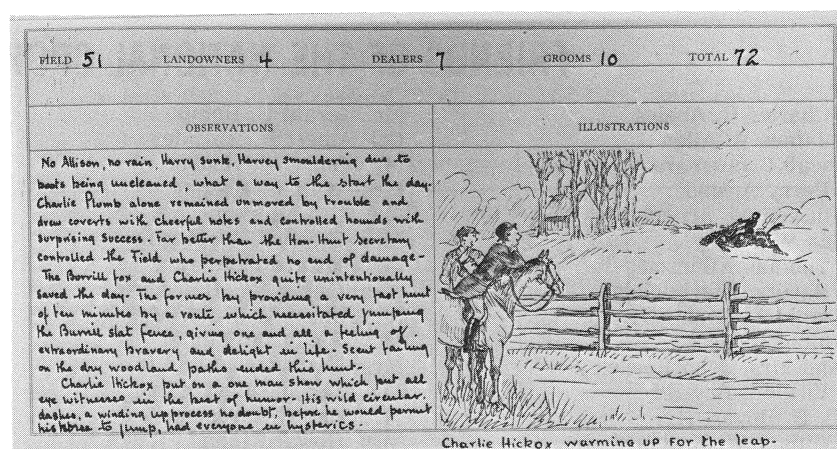 FIELD 51 LANDOWNERS 4 DEALERS 7 GROOMS 10 TOTAL 72
OBSERVATIONS
ILLUSTRATIONS
No Allison, no rain, Harry sunk, Harvey smouldering due to
boots being uncleaned, what a way to the start the day.
Charlie Plumb alone remained unmoved by trouble and
drew coverts with cheerful notes and controlled hounds with
surprising success. Far better than the Hon. Hunt Secretary
controlled the Field who perpetrated no end of damage.
The Borrill fox and Charlie Hickox quite unintentionally
saved the day. The former by providing a very fast hunt
of ten minutes by a route which necessitated jumping
the Burrill slat fence, giving one and all a feeling of
extraordinary bravery and delight in life. Scent failing
on the dry woodland paths ended this hunt.
Charlie Hickox put on a one man show which put all
eye witnesses in the best of humor. His wild circular
dashes, a winding up process no doubt, before he would permit
his horse to jump, had everyone in hysterics.
Charlie Hickox warming up for the leap.